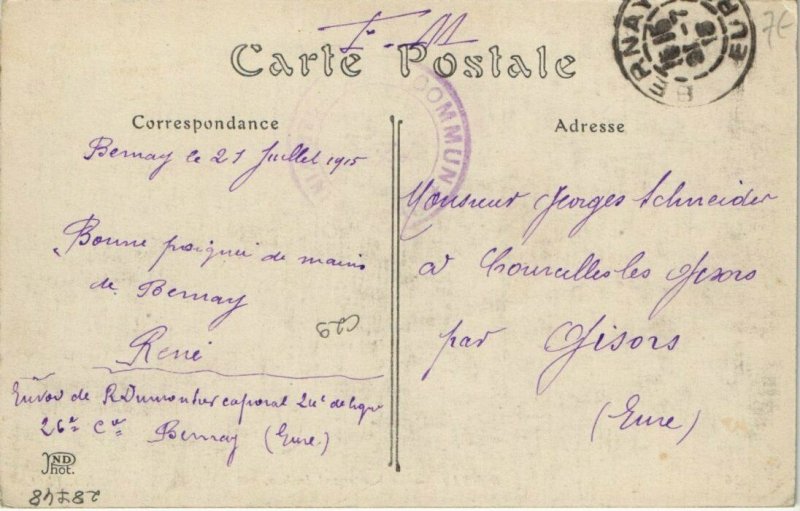 F. M
7€
Carte Postale
BERNAY
EURE
COMMUN
Correspondance
Bernay le 21 Juillet 1915
Bonne poignée de mains
de Bernay
René
Envoi de R Dumontier caporal 24e de ligne
26e Cie Bernay (Eure.)
ND
Phot.
Adresse
Monsieur Georges Schneider
à Courcelles les Gisors
par Gisors
(Eure)